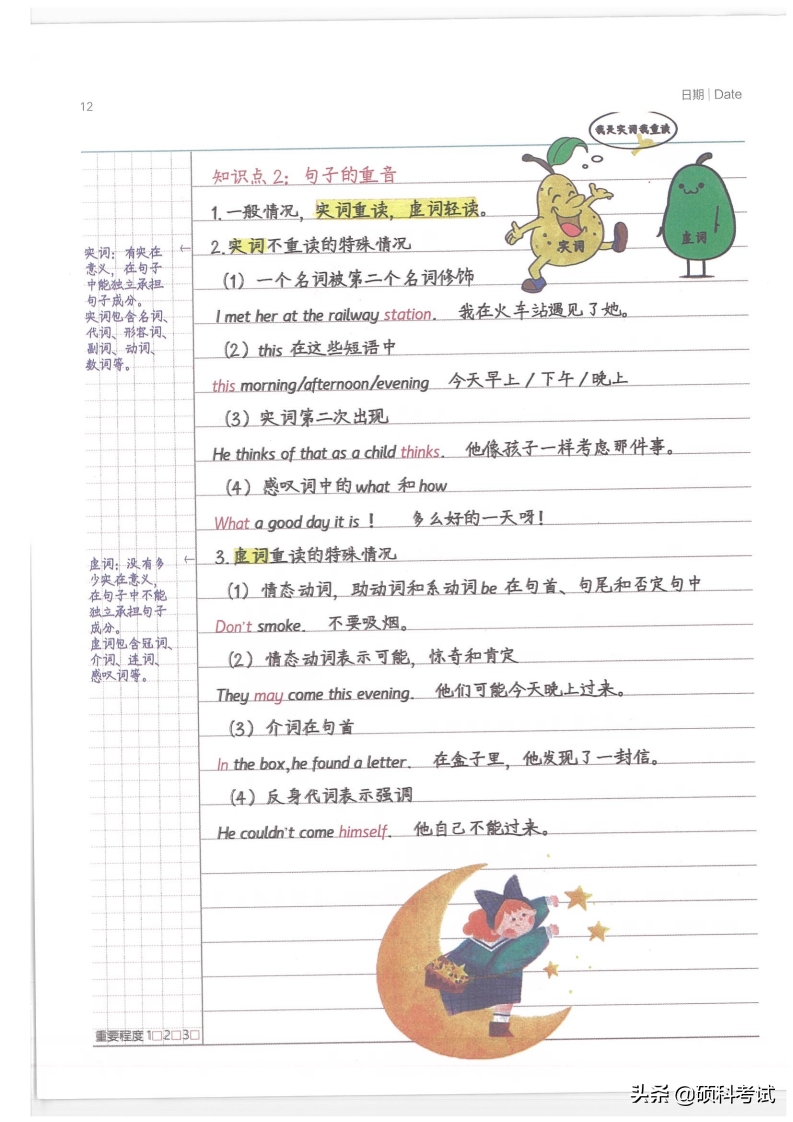 12
日期 | Date
我是实词我重读
实词
虚词
知识点2：句子的重音
1.一般情况，实词重读，虚词轻读。
2.实词不重读的特殊情况
实词：有实在
意义，在句子
中能独立承担
句子成分。
实词包含名词、
代词、形容词、
副词、动词、
数词等。
（1）一个名词被第二个名词修饰
I met her at the railway station. 我在火车站遇见了她。
（2）this 在这些短语中
this morning/afternoon/evening 今天早上/下午/晚上
（3）实词第二次出现
He thinks of that as a child thinks. 他像孩子一样考虑那件事。
（4）感叹词中的what 和how
What a good day it is ！ 多么好的一天呀！
3.虚词重读的特殊情况
虚词：没有多
少实在意义，
在句子中不能
独立承担句子
成分。
虚词包含冠词、
介词、连词、
感叹词等。
（1）情态动词，助动词和系动词be 在句首、句尾和否定句中
Don't smoke. 不要吸烟。
（2）情态动词表示可能，惊奇和肯定
They may come this evening. 他们可能今天晚上过来。
（3）介词在句首
In the box,he found a letter. 在盒子里，他发现了一封信。
（4）反身代词表示强调
He couldn't come himself. 他自己不能过来。
重要程度 1□2□3□
头条 @硕科考试